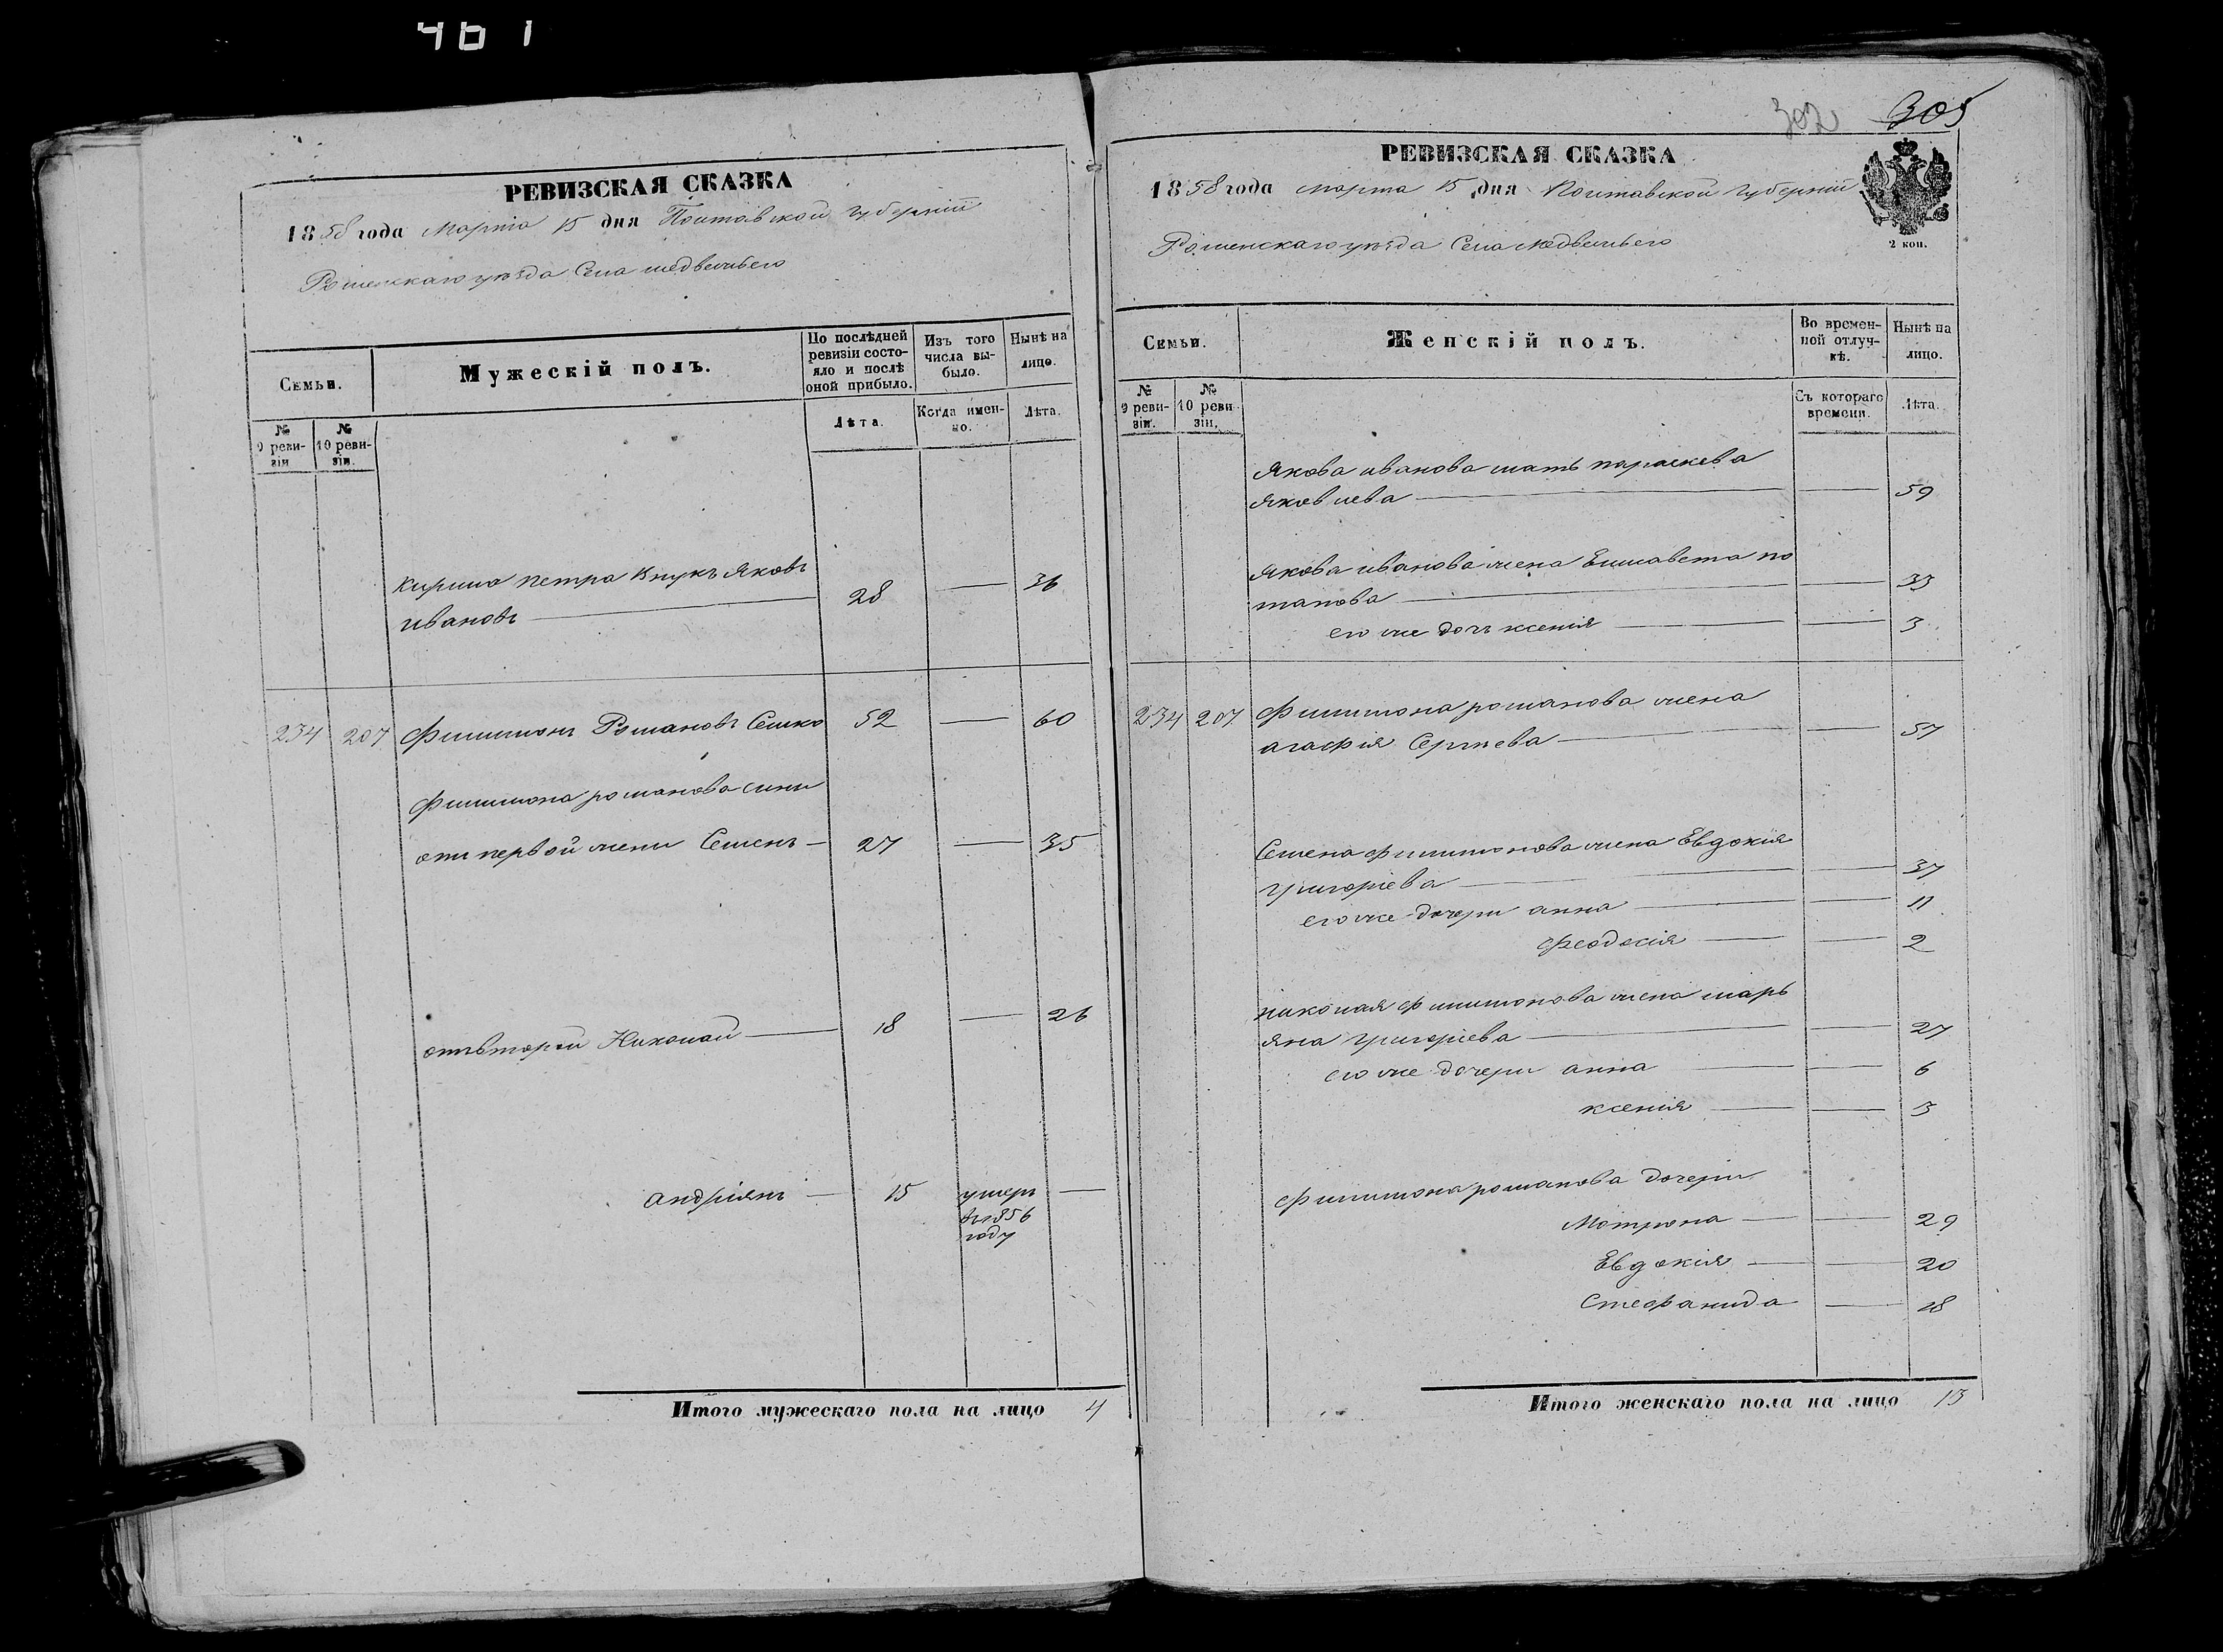 461
РЕВИЗСКАЯ СКАЗКА
1858 года Марта 15 дня Полтавской губерніи
Роменскаго уѣзда Села медвежьего
Семьи.
Мужескій полъ.
По послѣдней ревизіи состояло и послѣ оной прибыло.
Изъ того числа выбыло.
Нынѣ на лицо.
№ 9 ревизіи
№ 10 ревизіи.
Лѣта.
Когда именно.
Лѣта.
Кирила петра внукъ Яковъ
ивановъ — 28 — 36
234 207 Филимонъ Романовъ Сешко 52 — 60
Филимона романова сини
отъ первой жени Семенъ — 27 — 35
отъ второй Николай — 18 — 26
андріянъ — 15 умеръ —
въ 1856
году
Итого мужескаго пола на лицо 4
302 305
РЕВИЗСКАЯ СКАЗКА
1858 года марта 15 дня Полтавской губерніи
Роменскаго уѣзда Села медвежьего
2 коп.
Семьи.
Женскій полъ.
Во временной отлучкѣ.
Нынѣ на лицо.
№ 9 ревизіи.
№ 10 ревизіи.
Съ котораго времени.
Лѣта.
Якова иванова мать параскева
яковлева — — 59
Якова иванова жена Елисавета по
тапова — — 33
его же дочь ксенія — — 3
234 207 Филимона романова жена
агафія Сергѣева — — 57
Семена филимонова жена Евдокия
григоріева — — 37
его же дочери анна — — 11
феодосія — — 2
николая филимонова жена марь
яна григоріева — — 27
его же дочери анна — — 6
ксенія — — 3
Филимона романова дочери
Мотрона — — 29
Евдокія — — 20
Стефанида — 18
Итого женскаго пола на лицо 13